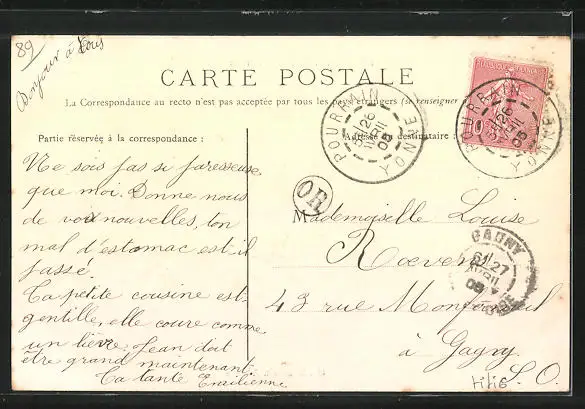 89
Bonjour à tous
CARTE POSTALE
La Correspondance au recto n'est pas acceptée par tous les pays étrangers (se renseigner
REPUBLIQUE FRANÇAISE
10
POURRAIN
26
AVRIL
05
YONNE
POURRAIN
26
AVRIL
05
YONNE
Partie réservée à la correspondance :
Adresse du destinataire :
Ne sois pas si paresseuse
que moi. Donne nous
de vos nouvelles, ton
mal d'estomac est-il
passé.
Ta petite cousine est
gentille, elle coure comme
un lièvre. Jean doit
être grand maintenant.
Ta tante Emilienne
OR
Mademoiselle Louise
43 rue
à Gagny
S. O.
GAGNY
27
AVRIL
05